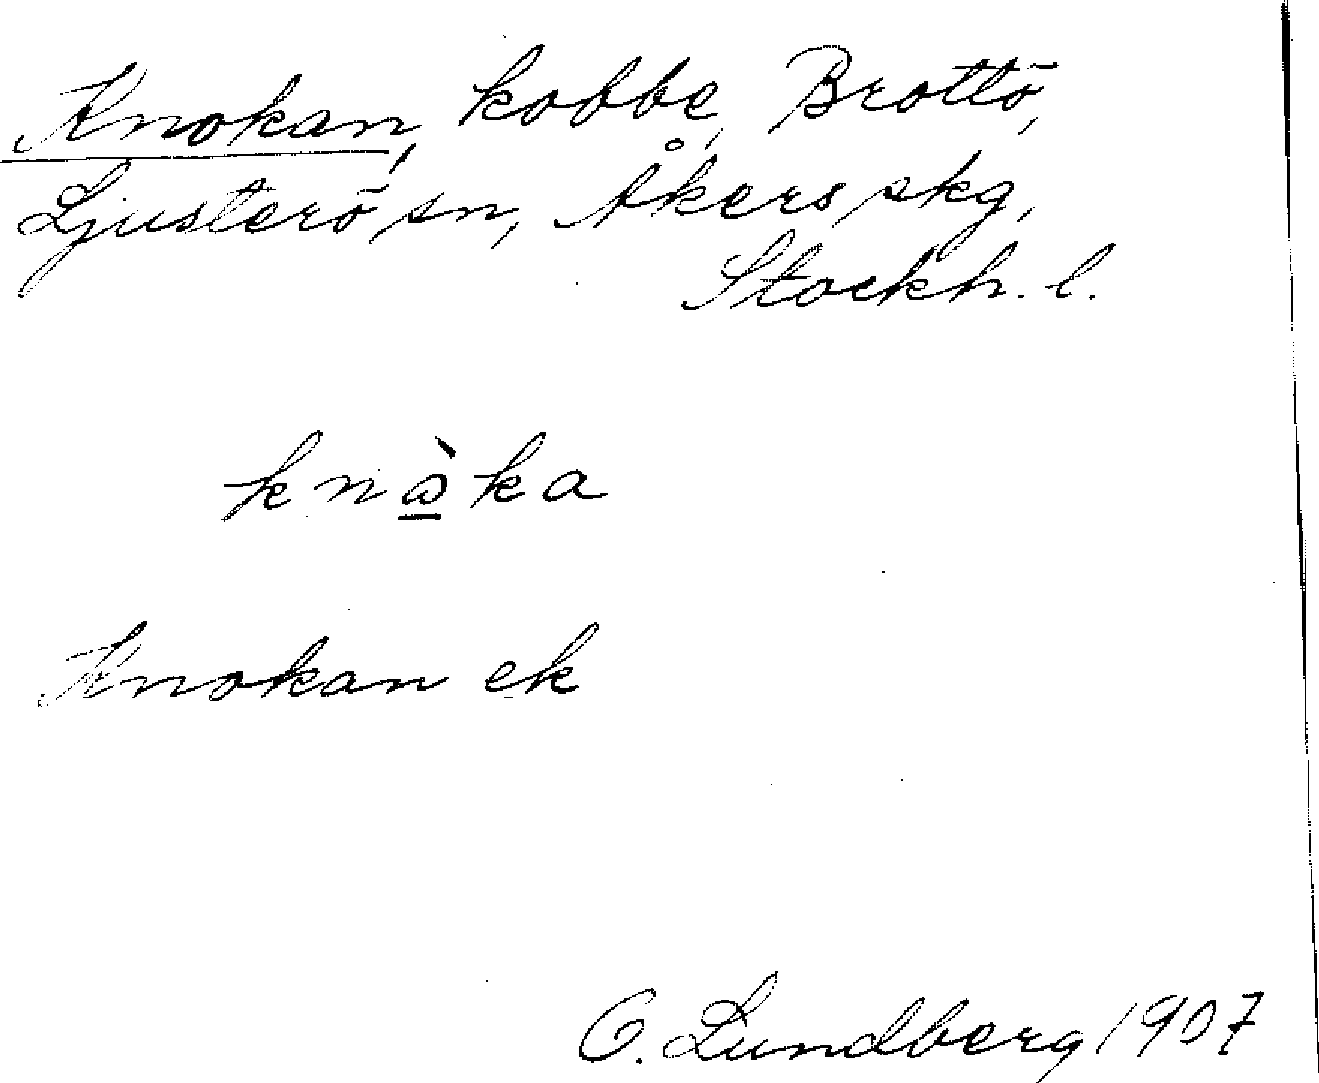 Knokan, kobbe, Brottö,
Ljusterö sn, Åkers skg,
Stockh. l.
knὼka
Knokan ek
O. Lundberg 1907